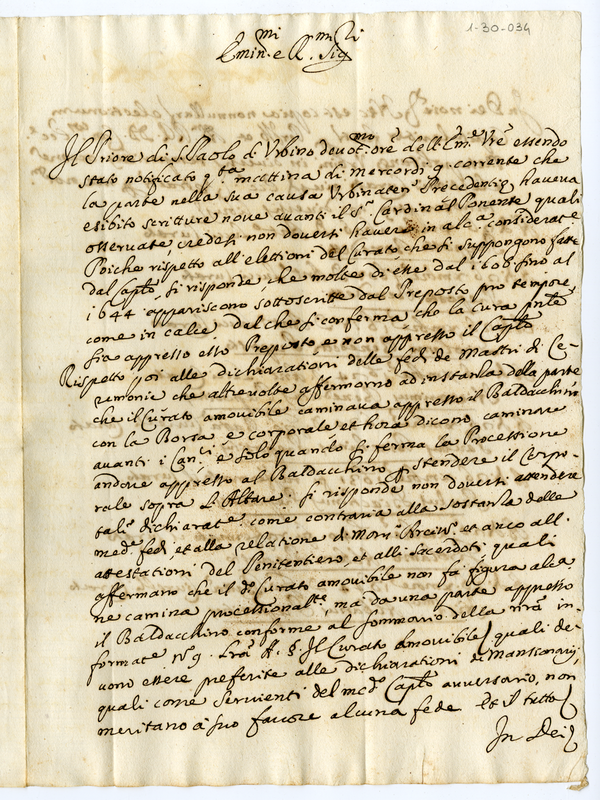 1-30-034
Emin.mi e R.mi Sig.ri
Il Priore di S. Paolo di Urbino devot.mo ore dell'Em.ze Vre essendo
stato notificato q.ta mattina di mercordi q. corrente che
la parte nella sua causa Urbinaten. Precedentiae haveva
esibito scritture nove avanti il S.r Cardinal Ponente quali
osservate, credesi non doversi havere in alc.a considerat.e
Poiche rispetto all'elettioni del Curato, che si suppongono fatte
dal Capto, si risponde, che molte di esse dal 1608. fino al
1644 appariscono sottoscritte dal Preposto pro tempore
come in calce, dal che si conferma che la cura pnte
sia appresso esso Preposto e non appresso il Capto
Rispetto poi alle dichiarationi delle fedi de Mastri di Ce-
rimonie che altrevolte affermorno ad instanza d.la parte
che il Curato amovibile caminava appresso il Baldacchino
con la Borsa, e corporale et hora dicono caminare
avanti i Can.ci e solo quando si ferma la Processione
andare appresso al Baldacchino p stendere il Corpo-
rale sopra l'Altare. si risponde non doversi attendere
tali dichiarat.e come contraria alla sostanza delle
med.e fedi, et alla relatione di Mons.r Arcives.o et anco all'
attestationi del Penitentiero, et alli sacerdoti quali
affermano che il d.o Curato amovibile non fà figura alca
ne camina processionalt.e, mà da una parte appresso
il Baldacchino conforme al sommario della nrà in-
format.e n.o 9. lrà A. § Il Curato amovibile, quali de-
vono essere preferite alle dichiarationi di Mansionarij,
quali come servienti del med.o Capto avversario, non
meritano à suo favore alcuna fede Et il tutto
In Dei